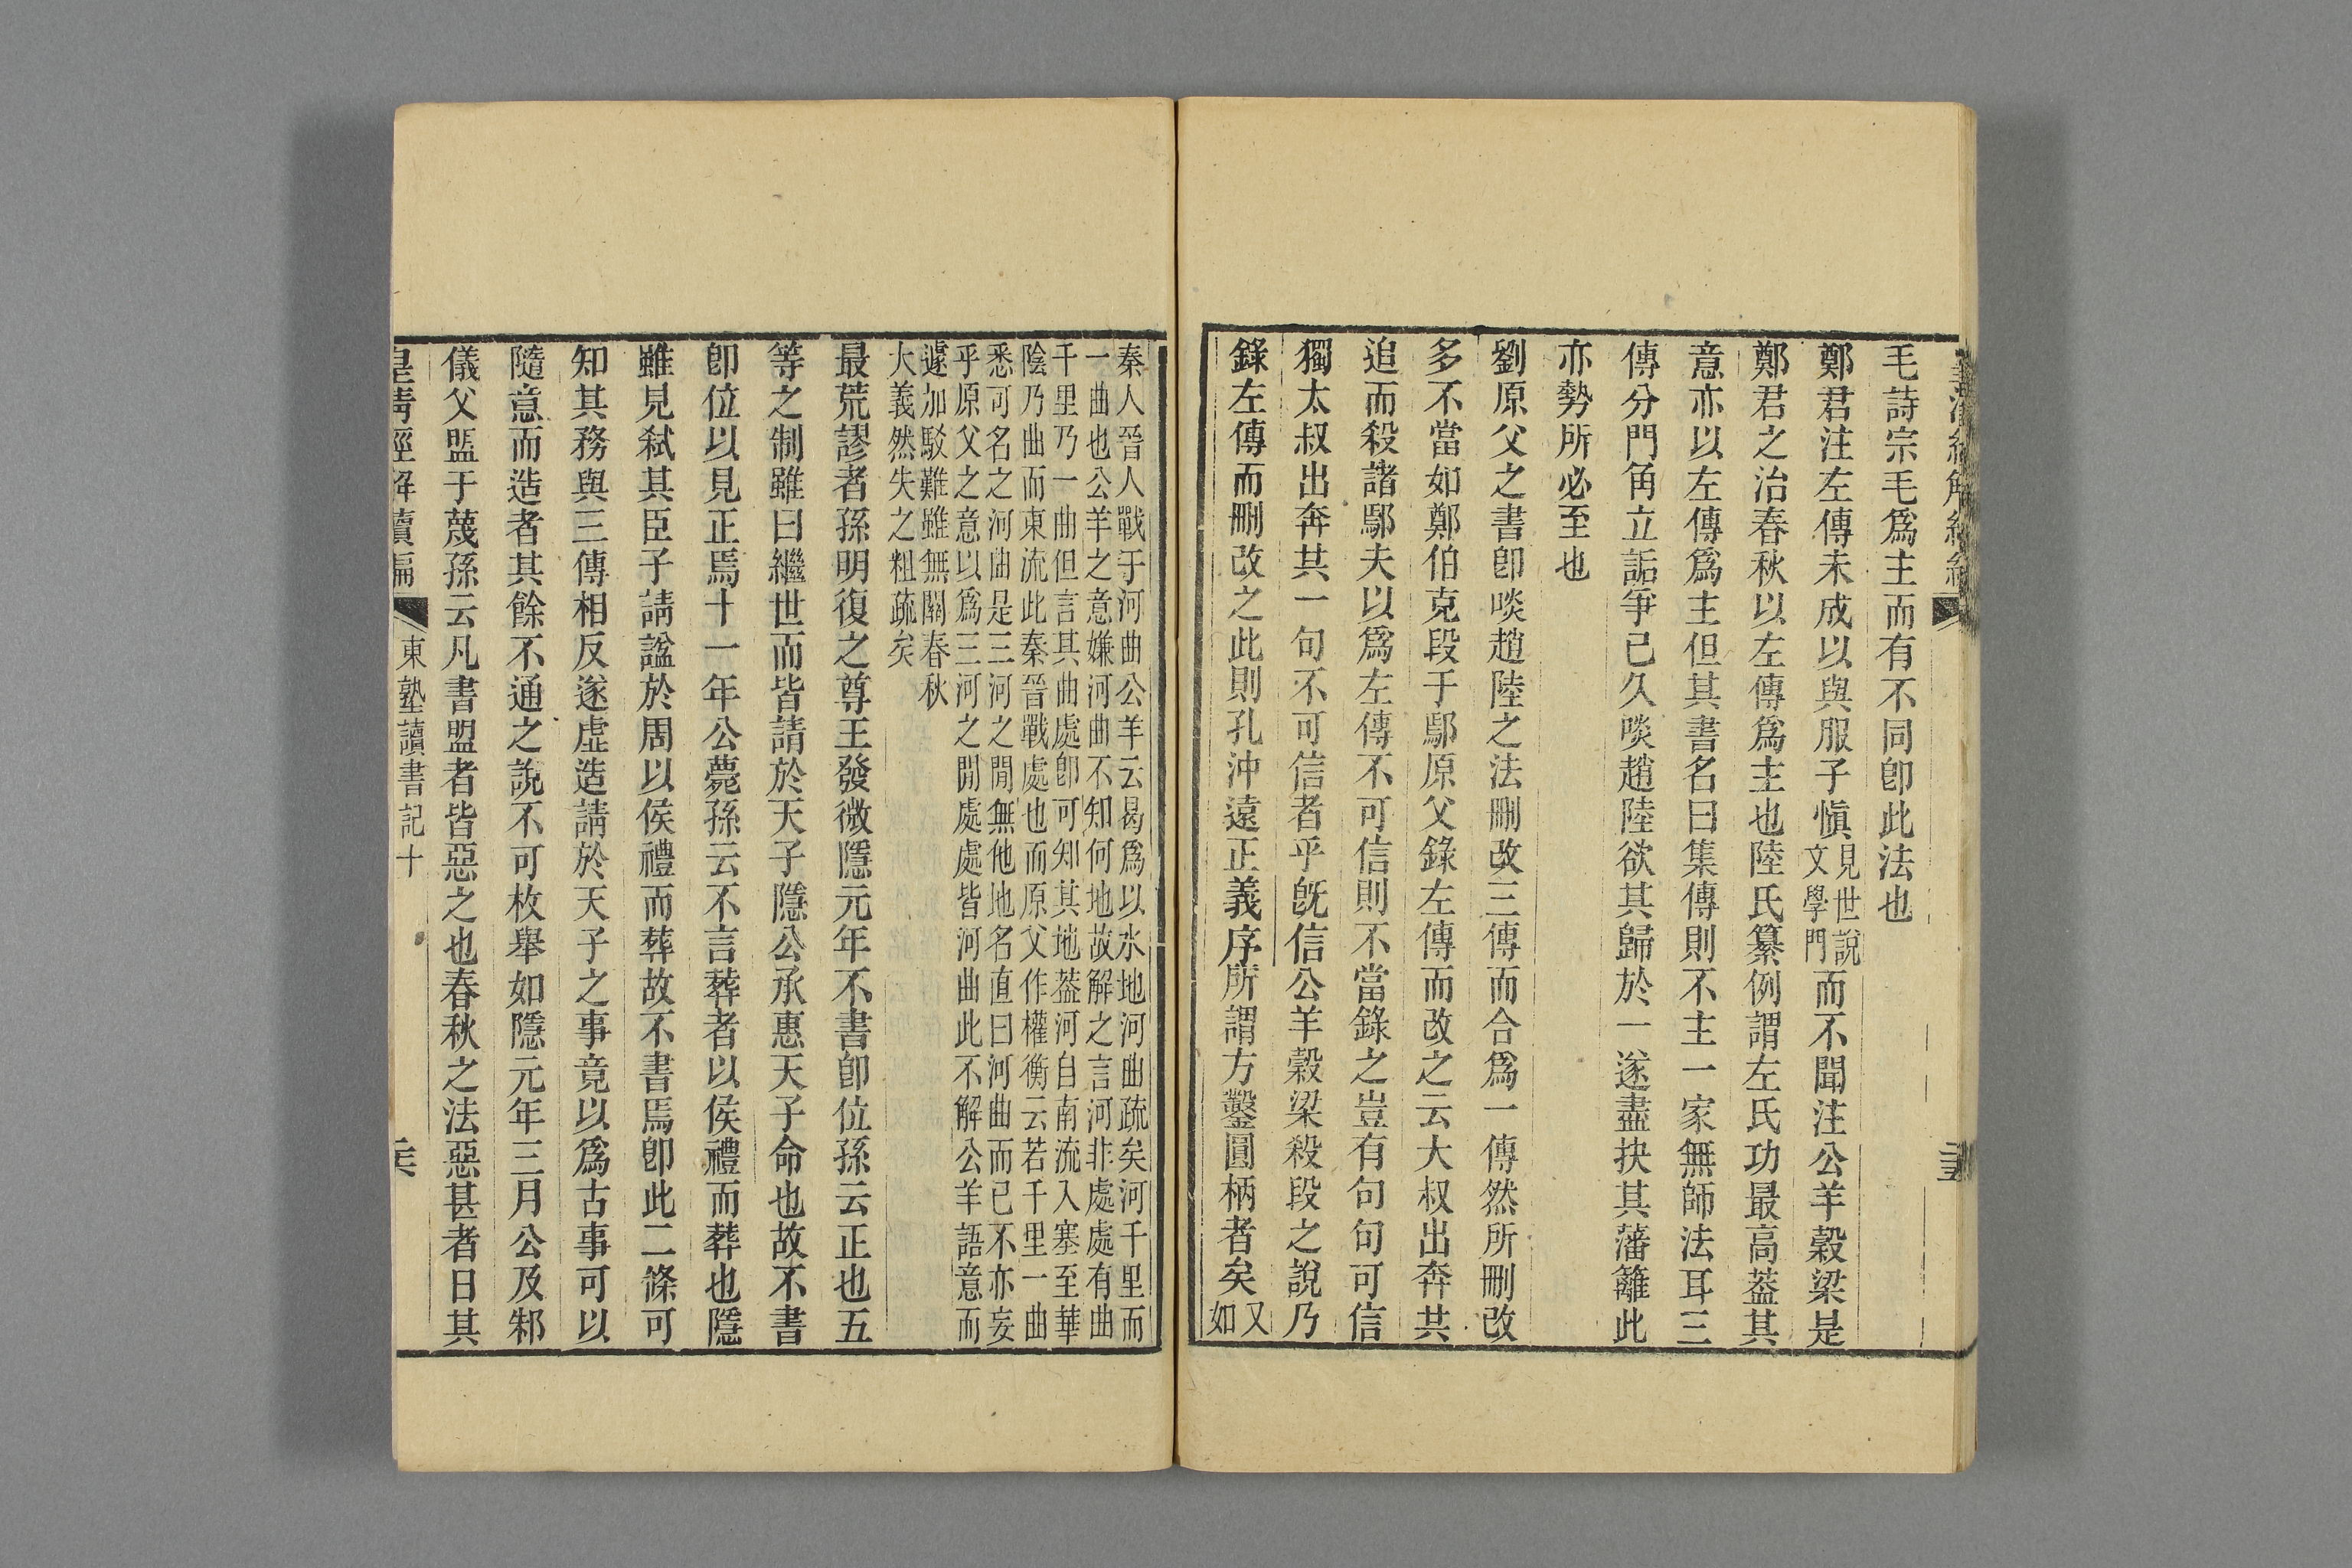 毛詩宗毛爲主而有不同卽此法也
鄭君注左傳未成以與服子愼見世說文學門而不聞注公羊穀梁是
鄭君之治春秋以左傳爲主也陸氏纂例謂左氏功最高葢其
意亦以左傳爲主但其書名曰集傳則不主一家無師法耳三
傳分門角立詬爭已久啖趙陸欲其歸於一遂盡抉其藩籬此
亦勢所必至也
劉原父之書卽啖趙陸之法刪改三傳而合爲一傳然所刪改
多不當如鄭伯克段于鄢原父錄左傳而改之云大叔出奔共
追而殺諸鄢夫以爲左傳不可信則不當錄之豈有句句可信
獨太叔出奔共一句不可信者乎旣信公羊穀梁殺段之說乃
錄左傳而刪改之此則孔沖遠正義序所謂方鑿圓柄者矣又如
秦人晉人戰于河曲公羊云曷爲以水地河曲疏矣河千里而
一曲也公羊之意嫌河曲不知何地故解之言河非處處有曲
千里乃一曲但言其曲處卽可知其地葢河自南流入塞至華
陰乃曲而東流此秦晉戰處也而原父作權衡云若千里一曲
悉可名之河曲是三河之閒無他地名直曰河曲而已不亦妄
乎原父之意以爲三河之閒處處皆河曲此不解公羊語意而
遽加駁難雖無關春秋
大義然失之粗疏矣
最荒謬者孫明復之尊王發微隱元年不書卽位孫云正也五
等之制雖曰繼世而皆請於天子隱公承惠天子命也故不書
卽位以見正焉十一年公薨孫云不言葬者以侯禮而葬也隱
雖見弒其臣子請諡於周以侯禮而葬故不書焉卽此二條可
知其務與三傳相反遂虛造請於天子之事竟以爲古事可以
隨意而造者其餘不通之說不可枚舉如隱元年三月公及邾
儀父盟于蔑孫云凡書盟者皆惡之也春秋之法惡甚者日其
皇淸經解續編 東塾讀書記十